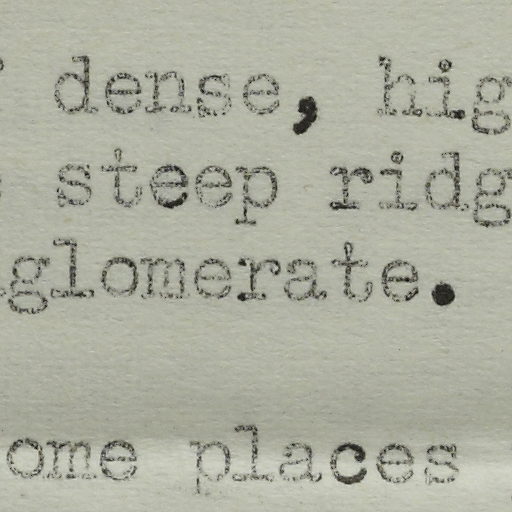 dense, hig
steep ridg
glomerate.
ome places